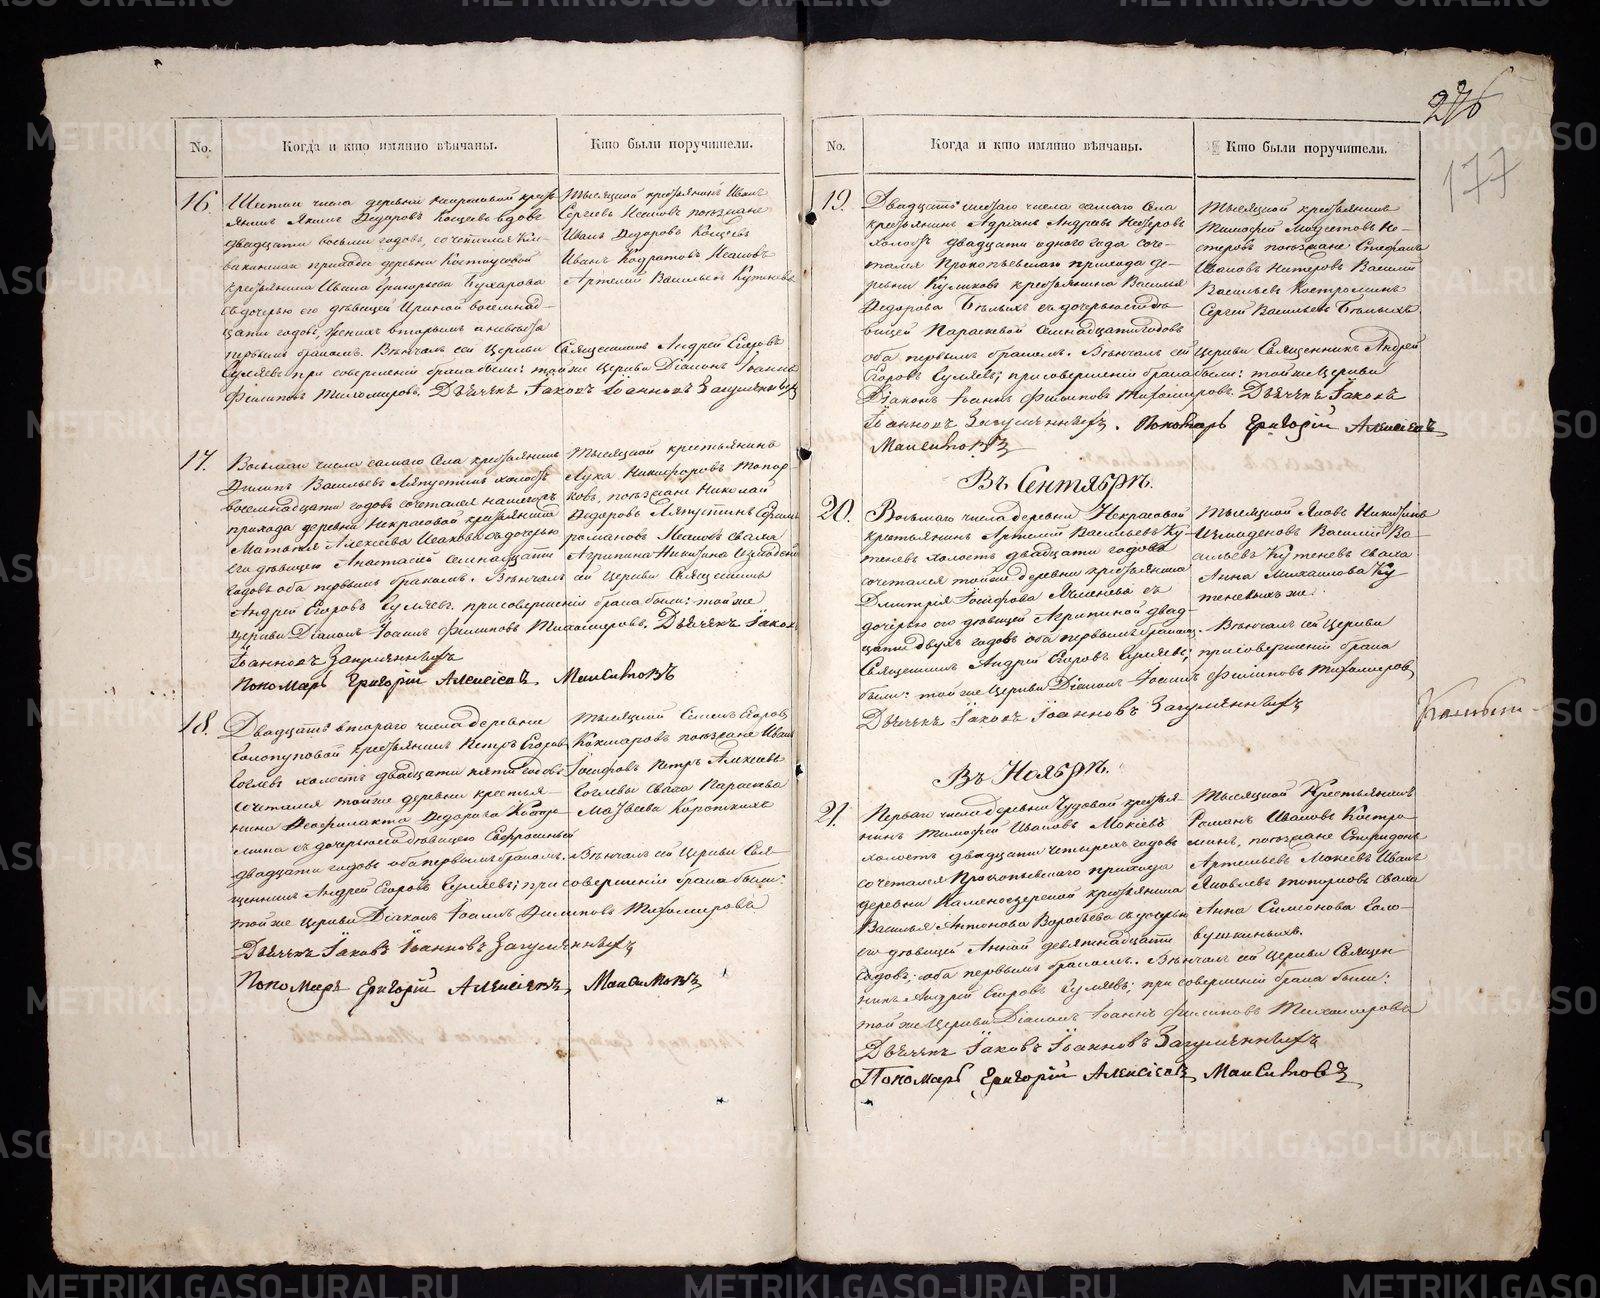 276
177
No.
Когда и кто имянно вѣнчаны.
Кто были поручители.
16.
Шестаго числа деревни
двадцати восьми годовъ, сочетался
приходи деревни
крестьянина Ивана Григорьева Бухарова
съ дочерью его дѣвицей Ириной восемнад-
цати годовъ, женихъ вторымъ а невѣста
первымъ бракомъ. Вѣнчалъ сей Церкви Священникъ Андрей Егоровъ
Суляевъ при совершеніи брака были: тойже Церкви Діаконъ Іоаннъ
Филиповъ Тихомировъ. Дьячекъ Іаковъ Іоанновъ Загуменныхъ
Тысяцкой крестьянинъ Иванъ
Сергѣевъ Исаковъ поѣзжане
Иванъ Ѳедоровъ Кощеевъ
Иванъ Исаковъ
Артемій Васильевъ Кутеневъ
17.
Восьмаго числа самаго Села крестьянинъ
Филипъ Васильевъ Ляпустинъ холостъ
восемнадцати годовъ сочетался нашего
прихода деревни Некрасовой крестьянина
Матвѣя Алексѣева Исакова съ дочерью
его дѣвицею Анастасіей семнадцати
годовъ оба первымъ бракомъ. Вѣнчалъ сей Церкви Священникъ
Андрей Егоровъ Суляевъ. при совершеніи брака были: тойже
Церкви Діаконъ Іоаннъ Филиповъ Тихомировъ. Дьячекъ Іаковъ
Іоанновъ Загуменныхъ
Пономарь Григорій Алексіевъ Манситовъ
Тысяцкой крестьянинъ
Лука Никифоровъ Топор
ковъ, поѣзжане Николай
Ѳедоровъ Ляпустинъ
Исаковъ сваха
Агрипина Никитина
18.
Двадцать втораго числа деревни
Голопуповой крестьянинъ Петръ Егоровъ
холостъ двадцати пяти годовъ
сочеталися тойже деревни крестья-
нина Ѳеофилакта Ѳедорова Костро-
мина съ дочерью его дѣвицею
двадцати годовъ оба первымъ бракомъ. Вѣнчалъ сей Церкви Свя-
щенникъ Андрей Егоровъ Суляевъ; при совершеніи брака были:
тойже Церкви Діаконъ Іоаннъ Филиповъ Тихомировъ
Дьячекъ Іаковъ Іоанновъ Загуменныхъ
Пономарь Григорій Алексіевъ Манситовъ
Тысяцкой Семенъ Егоровъ
поѣзжане Иванъ
Іосифовъ Петръ Алексѣевъ
сваха Параскева
Матвѣева Короткихъ
No.
Когда и кто имянно вѣнчаны.
Кто были поручители.
19.
Двадцать числа самаго Села
крестьянинъ Адріанъ Андреевъ Нестеровъ
холостъ двадцати одного года соче-
тался Прокопьевскаго прихода де-
ревни Куликовой крестьянина Василья
Ѳедорова Бѣлыхъ съ дочерью его дѣ-
вицей Параскевой семнадцати годовъ
оба первымъ бракомъ. Вѣнчалъ сей Церкви Священникъ Андрей
Егоровъ Суляевъ; при совершеніи брака были: тойже Церкви
Діаконъ Іоаннъ Филиповъ Тихомировъ. Дьячекъ Іаковъ
Іоанновъ Загуменныхъ. Пономарь Григорій Алексіевъ
Манситовъ
Тысяцкой крестьянинъ
Тимофей Модестовъ Не-
стеровъ поѣзжане: Стефанъ
Ивановъ Нестеровъ Василій
Васильевъ Костроминъ
Сергей Васильевъ Бѣлыхъ
Въ Сентябрѣ.
20.
Восьмаго числа деревни Некрасовой
крестьянинъ Артемій Васильевъ Ку-
теневъ холостъ двадцати годовъ
сочетался тойже деревни крестьянина
Дмитрія Іосифова Ячменева съ
дочерью его дѣвицей Агрипиной двад-
цати двухъ годовъ оба первымъ бракомъ. Вѣнчалъ сей Церкви
Священникъ Андрей Егоровъ Суляевъ; при совершеніи брака
были: тойже Церкви Діаконъ Іоаннъ Филиповъ Тихомировъ
Дьячекъ Іаковъ Іоанновъ Загуменныхъ
Тысяцкой Яковъ Никитинъ
Измоденовъ Василій Ва-
сильевъ Кутеневъ сваха
Анна Михайлова Ку
теневыхъ же.
Въ Ноябрѣ.
21.
Перваго числа деревни Чудовой крестья-
нинъ Тимофей Ивановъ Мокѣевъ
холостъ двадцати четырехъ годовъ
сочетался Прокопьевскаго прихода
деревни Каменоозерской крестьянина
Василья Антонова Воробьева съ дочерью
его дѣвицей Анной девятнадцати
годовъ; оба первымъ бракомъ. Вѣнчалъ сей Церкви Священ-
никъ Андрей Егоровъ Суляевъ; при совершеніи брака были:
тойже Церкви Діаконъ Іоаннъ Филиповъ Тихомировъ
Дьячекъ Іаковъ Іоанновъ Загуменныхъ
Пономарь Григорій Алексіевъ Манситовъ
Тысяцкой Крестьянинъ
Романъ Ивановъ Костро-
минъ, поѣзжане Спиридонъ
Артемьевъ Мокеевъ Иванъ
Яковлевъ Топорковъ сваха
Анна Симеонова Голо-
вушкиныхъ.
METRIKI.GASO-URAL.RU